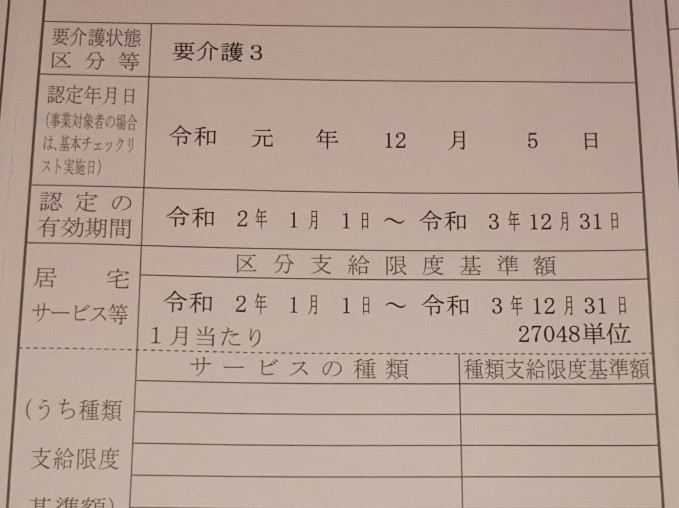 要介護状態
区分等
要介護3
認定年月日
(事業対象者の場合
は、基本チェックリ
スト実施日)
令和 元 年 12 月 5 日
認定の
有効期間
令和 2年 1月 1日 ～ 令和 3年12月31日
居宅
サービス等
区分支給限度基準額
令和 2年 1月 1日 ～ 令和 3年12月31日
1月当たり 27048単位
サービスの種類 種類支給限度基準額
(うち種類
支給限度
基準額)